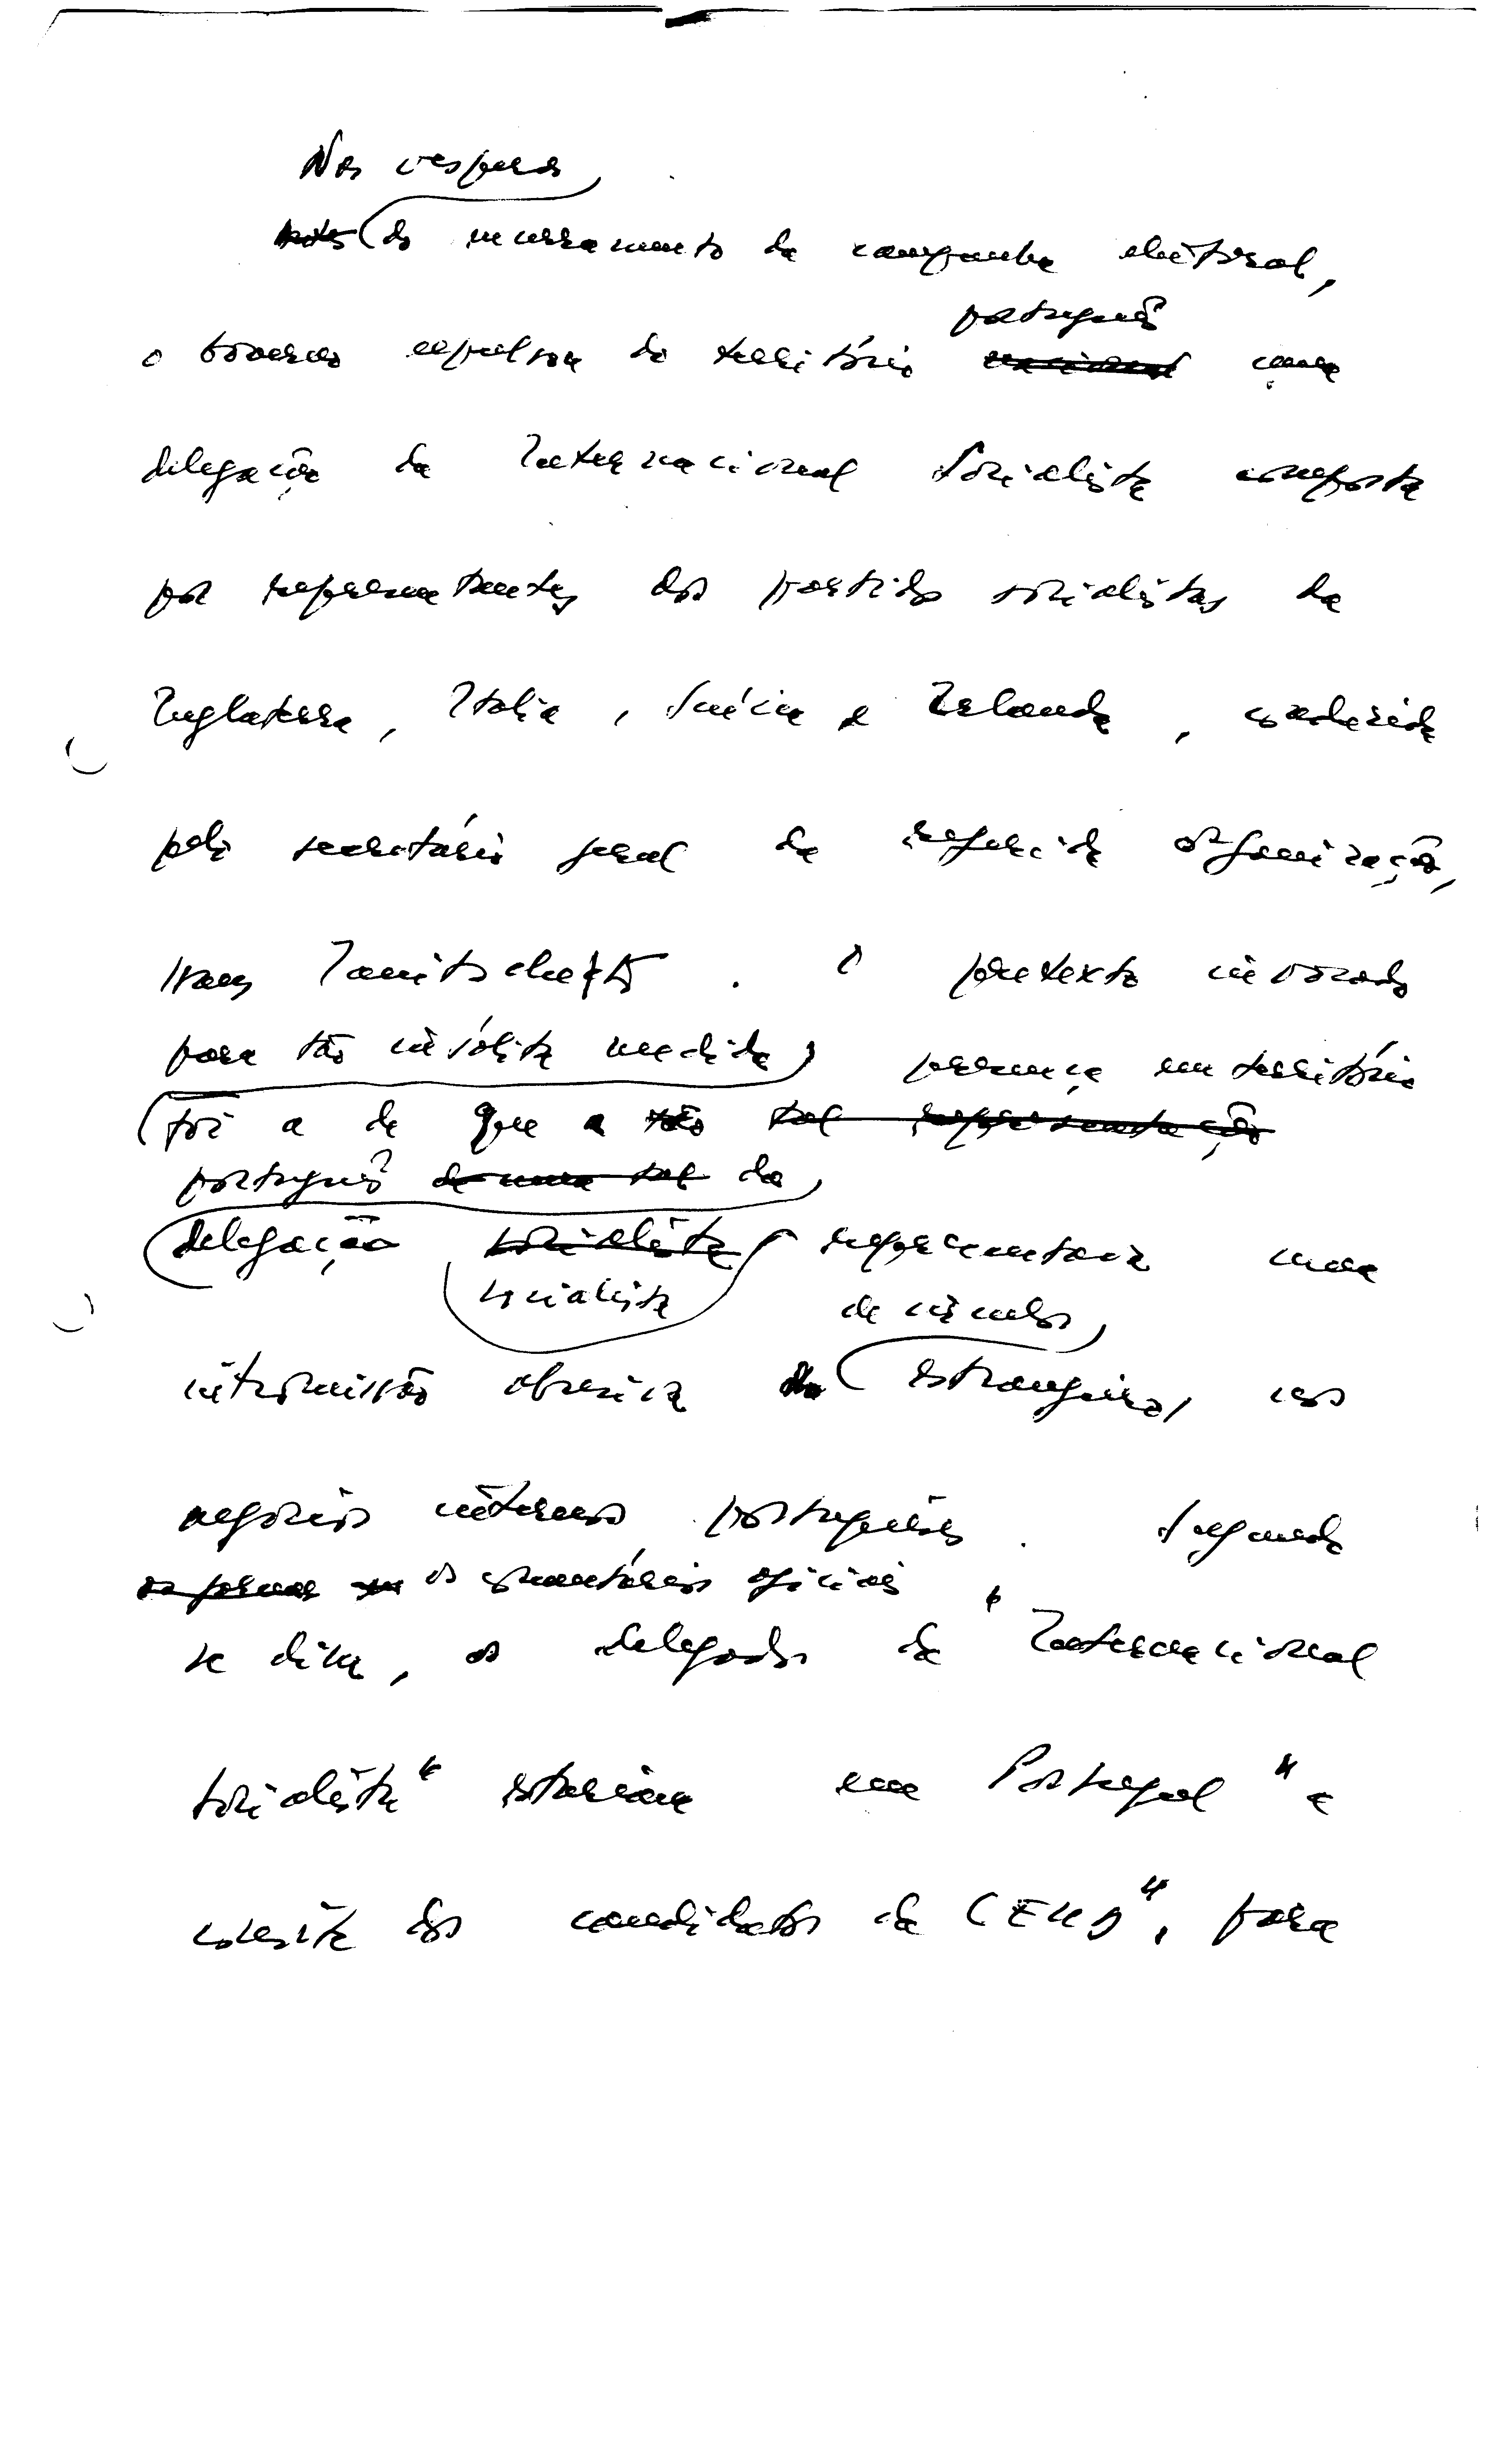 Nas vesperas
do encerramento da campanha eleitoral,
português
o Governo expulsou do território nacional uma
delegação da Internacional Socialista composta
por representantes dos partidos socialistas da
Inglaterra, Italia, Suécia e Irlanda, conduzida
pelo secretário geral da referida organização,
Hans Janitschek. O pretexto invocado
para tão insólita medida presença em território
foi a de que a tão tal representação
português de uma tal da
delegação socialista representaria uma
socialista de vínculos
intromissão abusiva de estrangeiros, nos
negócios internos portugueses. Segundo
os comentários oficiais
se dizia, os delegados da "Internacional
Socialista" estariam em Portugal "a
convite dos candidatos da CEUD", para